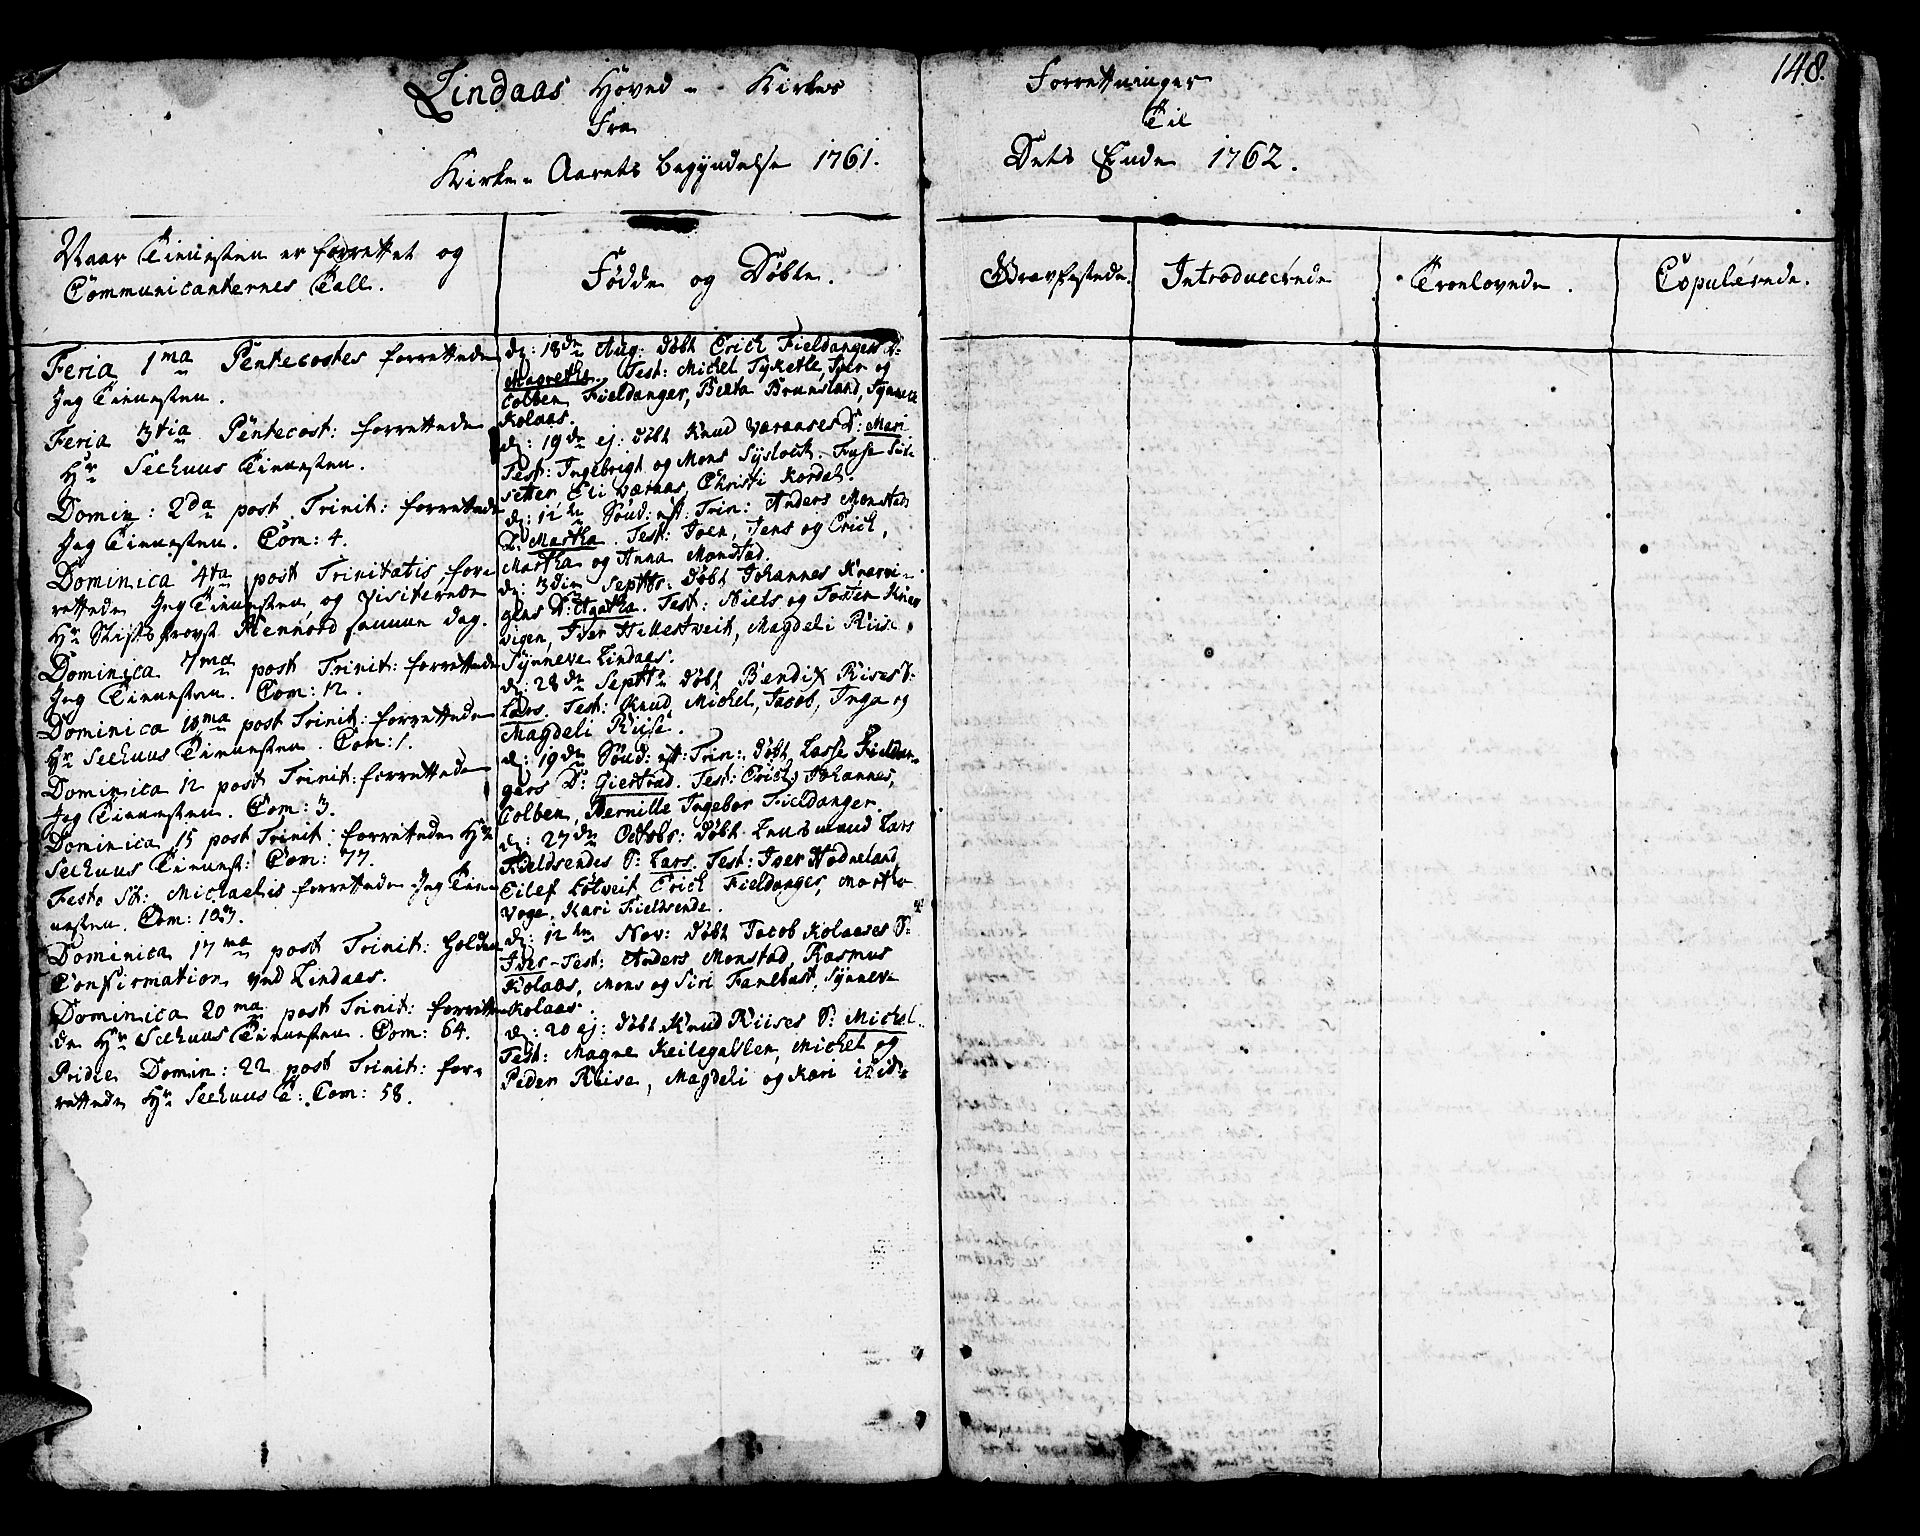 148.
Lindaas Hoved- Kirkes Forretninger
Fra Til
Kirke-Aarets begyndelse 1761. Dets Ende 1762.
Naar Tienesten er forrettet og
Communicanternes Tall.
Fødde og Døbte.
Gravfestede.
Introducerede
Troelovede.
Copulerede.
Feria 1ma Pentecostes forrettede
Jeg Tienesten.
Feria 3tia Pentecost: forrettede
Hr Seehuus Tienesten.
Domin: 2da post Trinit: forrettede
Jeg Tienesten. Com: 4.
Dominica 4ta post Trinitatis, for-
rettede Jeg Tienesten, og visiterede
Hr Stiftsprovst samme dag.
Dominica 7ma post Trinit: forrettede
Jeg Tienesten. Com: 12.
Dominica 10ma post Trinit: forrettede
Hr Seehuus Tienesten. Com: 1.
Dominica 12 post Trinit: forrettede
Jeg Tienesten. Com: 3.
Dominica 15 post Trinit: forrettede Hr
Seehuus Tienest: Com: 77.
Festo St: Michaelis forrettede Jeg Tie-
nesten. Com:
Dominica 17ma post Trinit: holden
Confirmation ved Lindaas.
Dominica 20ma post Trinit: forrette-
de Hr Seehuus Tienesten. Com: 64.
Pridie Domin: 22 post Trinit: for-
rettede Hr Seehuus T: Com: 58.
d: 18de Aug: døbt Erich Fieldangers D:
Magrethe. Test: Michel Tyketle, Iver og
Colben Fieldanger, Berta Brunsland, Synneve
Kolaas.
d: 19de ej: døbt Knud Varaases D: Mari
Test: Ingebrigt og Mons
setter Eli Varaas, Christi Kordal.
d: 12te Sönd: eft: Trin: Anders Monstads
D: Martha. Test: Joen, Jens og Erich,
Martha og Anna Monstad.
d: 3die Septbr: døbt Johannes Knarvi-
gens D: Agatha. Test: Niels og Tosten Knar
vigen, Iver Hillestveit, Magdeli Riise,
Synneve Lindaas.
d: 28de Septbr døbt Bendix Riises S:
Lars. Test: Knud, Michel, Jacob, Inga og
Magdeli Riise.
d: 19de Sönd: eft: Trin: døbt Lasse Fieldan-
gers D: Giertrud. Test: Erich, Johannes,
Colben, Pernille Ingebor Fieldanger.
d: 27de Octobr: døbt Lars
Fieldsendes S: Lars. Test: Iver Hodneland,
Eilef Løtveit Erich Fieldanger, Martha
Voge, Kari Fieldsende.
d: 12te Nov: døbt Jacob Kolaases S:
Iver- Test: Anders Monstad, Rasmus
Kolaas, Mons og Siri Fanebust, Synneve
Kolaas.
d: 20 ej: døbt Knud Riises S: Michel.
Test: Magne Keilegallen, Michel og
Peder Riise, Magdeli og Kari ibid: